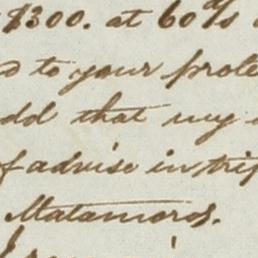 $300. at 60 d/s
to your prote
dd that my
f advise in trip
Matamoros.